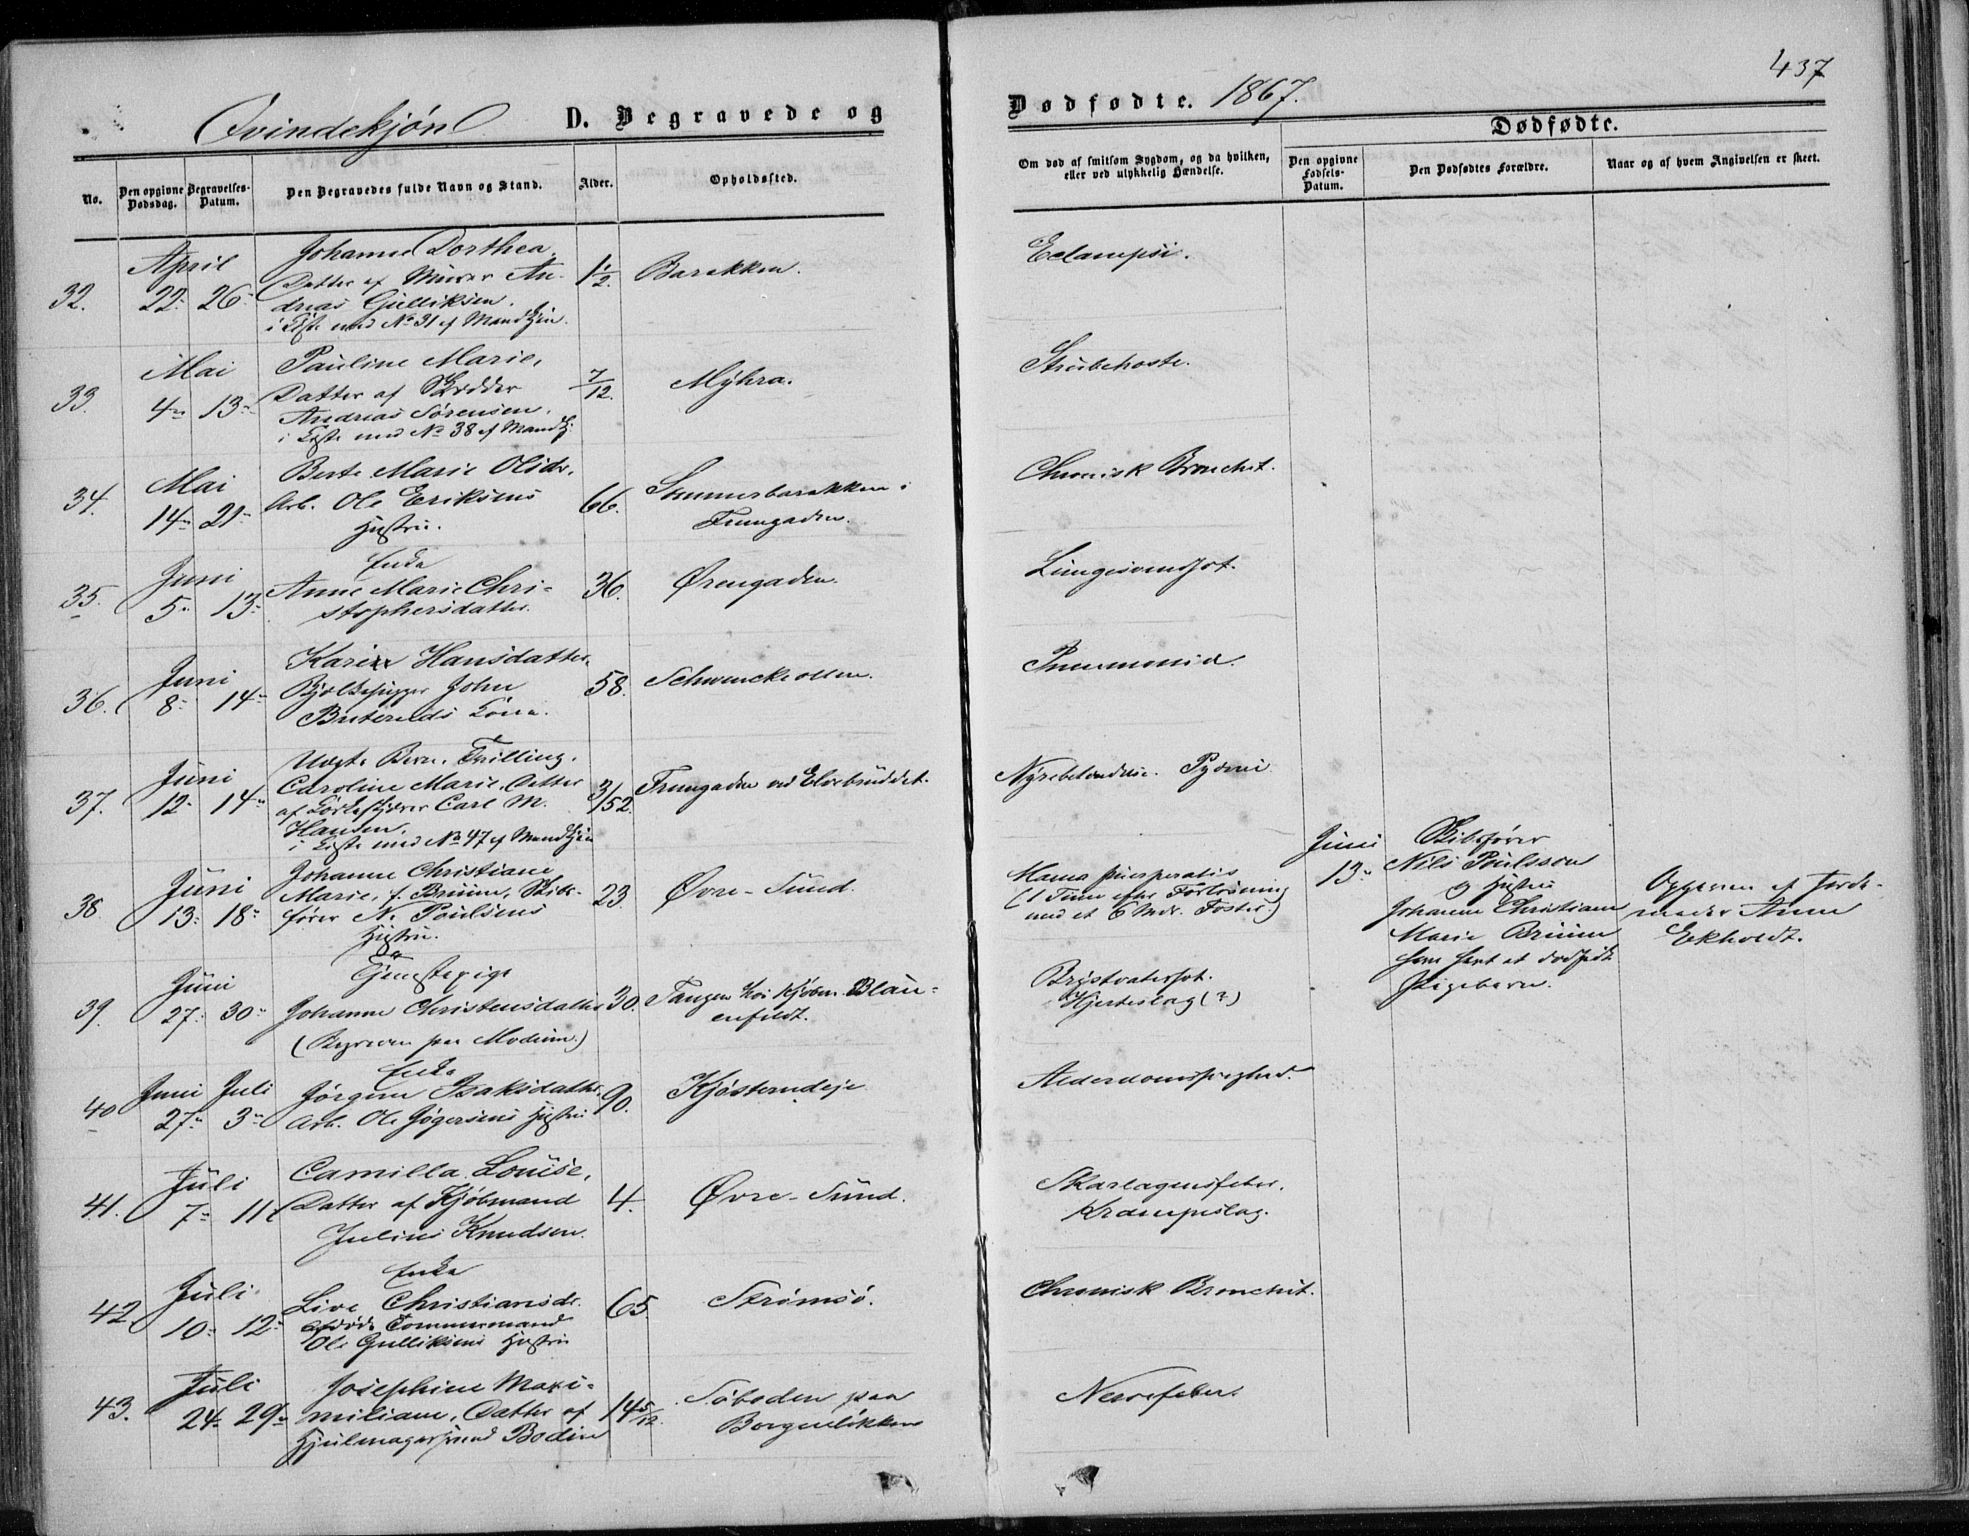 437
Qvindekjøn D. Begravede og Dødfødte. 1867.
Dødfødte.
No.
Den opgivne Dødsdag.
Begravelses-Datum.
Den Begravedes fulde Navn og Stand.
Alder.
Opholdssted.
Om død af smitsom Sygdom, og da hvilken, eller ved ulykkelig Hændelse.
Den opgivne Fødsels-Datum.
Den Dødfødtes Forældre.
Naar og af hvem Angivelsen er skeet.
32. April 22. 26.
Johanne Dorthea,
Datter af Murer An-
dreas Gulliksen.
i Kiste med No 31 af Mandkjøn.
1 1/2 Barakken. Eclampsi.
33. Mai 4. 13.
Pauline Marie,
Datter af Skrædder
Andreas Sørensen,
i Kiste med No 38 af Mandkj.
7/12. Myhra. Strubehoste.
34. Mai 14. 21.
Berte Marie Olsdr.
Arb. Ole Eriksens
Hustru.
66. Sommerbarakken i
Tromgaden.
Chronisk Bronchit.
35. Juni 5. 13.
Enke
Anne Marie Chri-
stophersdatter.
36. Ørengaden. Lungesvindsot.
36. Juni 8. 14.
Karine Hansdatter,
John
Kone.
58. Schwenckeollen. Pneumonia.
37. Juni 12. 14.
Uægte Barn. Trilling.
Caroline Marie, Datter
af Carl M.
Hansen.
i Kiste med No 47 af Mandkjøn
3/52. Tromgaden ved Elvebruddet.
Nyrebetændelse. Pyæmi.
38. Juni 13. 18.
Johanne Christiane
Marie, f. Bruun, Skibs-
fører N. Poulsens
Hustru.
23. Øvre-Sund.
Mania puerperalis
(1 Time efter Forløsning
med et 6 Mdr. Foster.)
Juni 13.
Skibsfører
Nils Poulsson
og Hustru
Johanne Christiane
Marie Bruun
som født et dødfødt
Pigebarn.
Opgiven af Jorde-
moder Anne
Eekholdt.
39. Juni 27. 30.
Tjenestepige
Johanne Christensdatter
(Begraven paa Modum.)
30. Tangen hos Kjøbm. Blau-
enfeldt.
Brystvatersot.
Hjerteslag (?)
40. Juni 27. Juli 3.
Enke
Jørgine Isaksdatter,
Arb. Ole Jøgersens Hustru
90. Kjøsterudeje Alderdomssvaghed.
41. Juli 7. 11.
Camilla Louise,
Datter af Kjøbmand
Julius Knudsen.
4. Øvre-Sund.
Skarlagensfeber.
Krampeslag.
42. Juli 10. 12.
Enke
Live Christiansdr.
afdøde Tømmermand
Ole Gulliksens Hustru
65. Strømsö. Chronisk Bronchit.
43. Juli 24. 29.
Josephine Maxi-
miliane, Datter af
Hjulmagersvend Bodin
14 5/12. Söboden paa
Borgenlökken
Nervefeber.